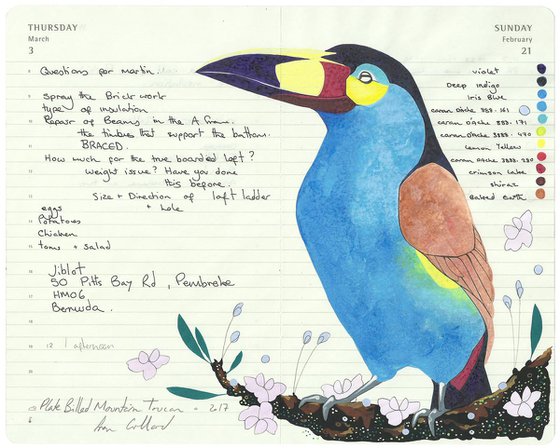 THURSDAY
March
3
Questions for Martin.
Spray the Brick work
type of insulation
Repair of Beams in the A frame.
the timbers that support the bottoms.
BRACED.
How much for the true boarded loft?
weight issue? Have you done
this before.
Size + Direction of loft ladder
+ hole
eggs
Potatoes
Chicken
toms + salad
Jiblot
50 Pitts Bay Rd, Pembroke
HM06
Bermuda.
1 afternoon
Plate Billed Mountain Toucan - 2017
SUNDAY
February
21
violet
Deep Indigo
Iris Blue
caran d'Ache 888. 161
caran d'Ache 888. 171
caran d'Ache 3888. 470
Lemon Yellow
caran d'Ache 3888. 290
crimson Lake
shiraz
Baked Earth